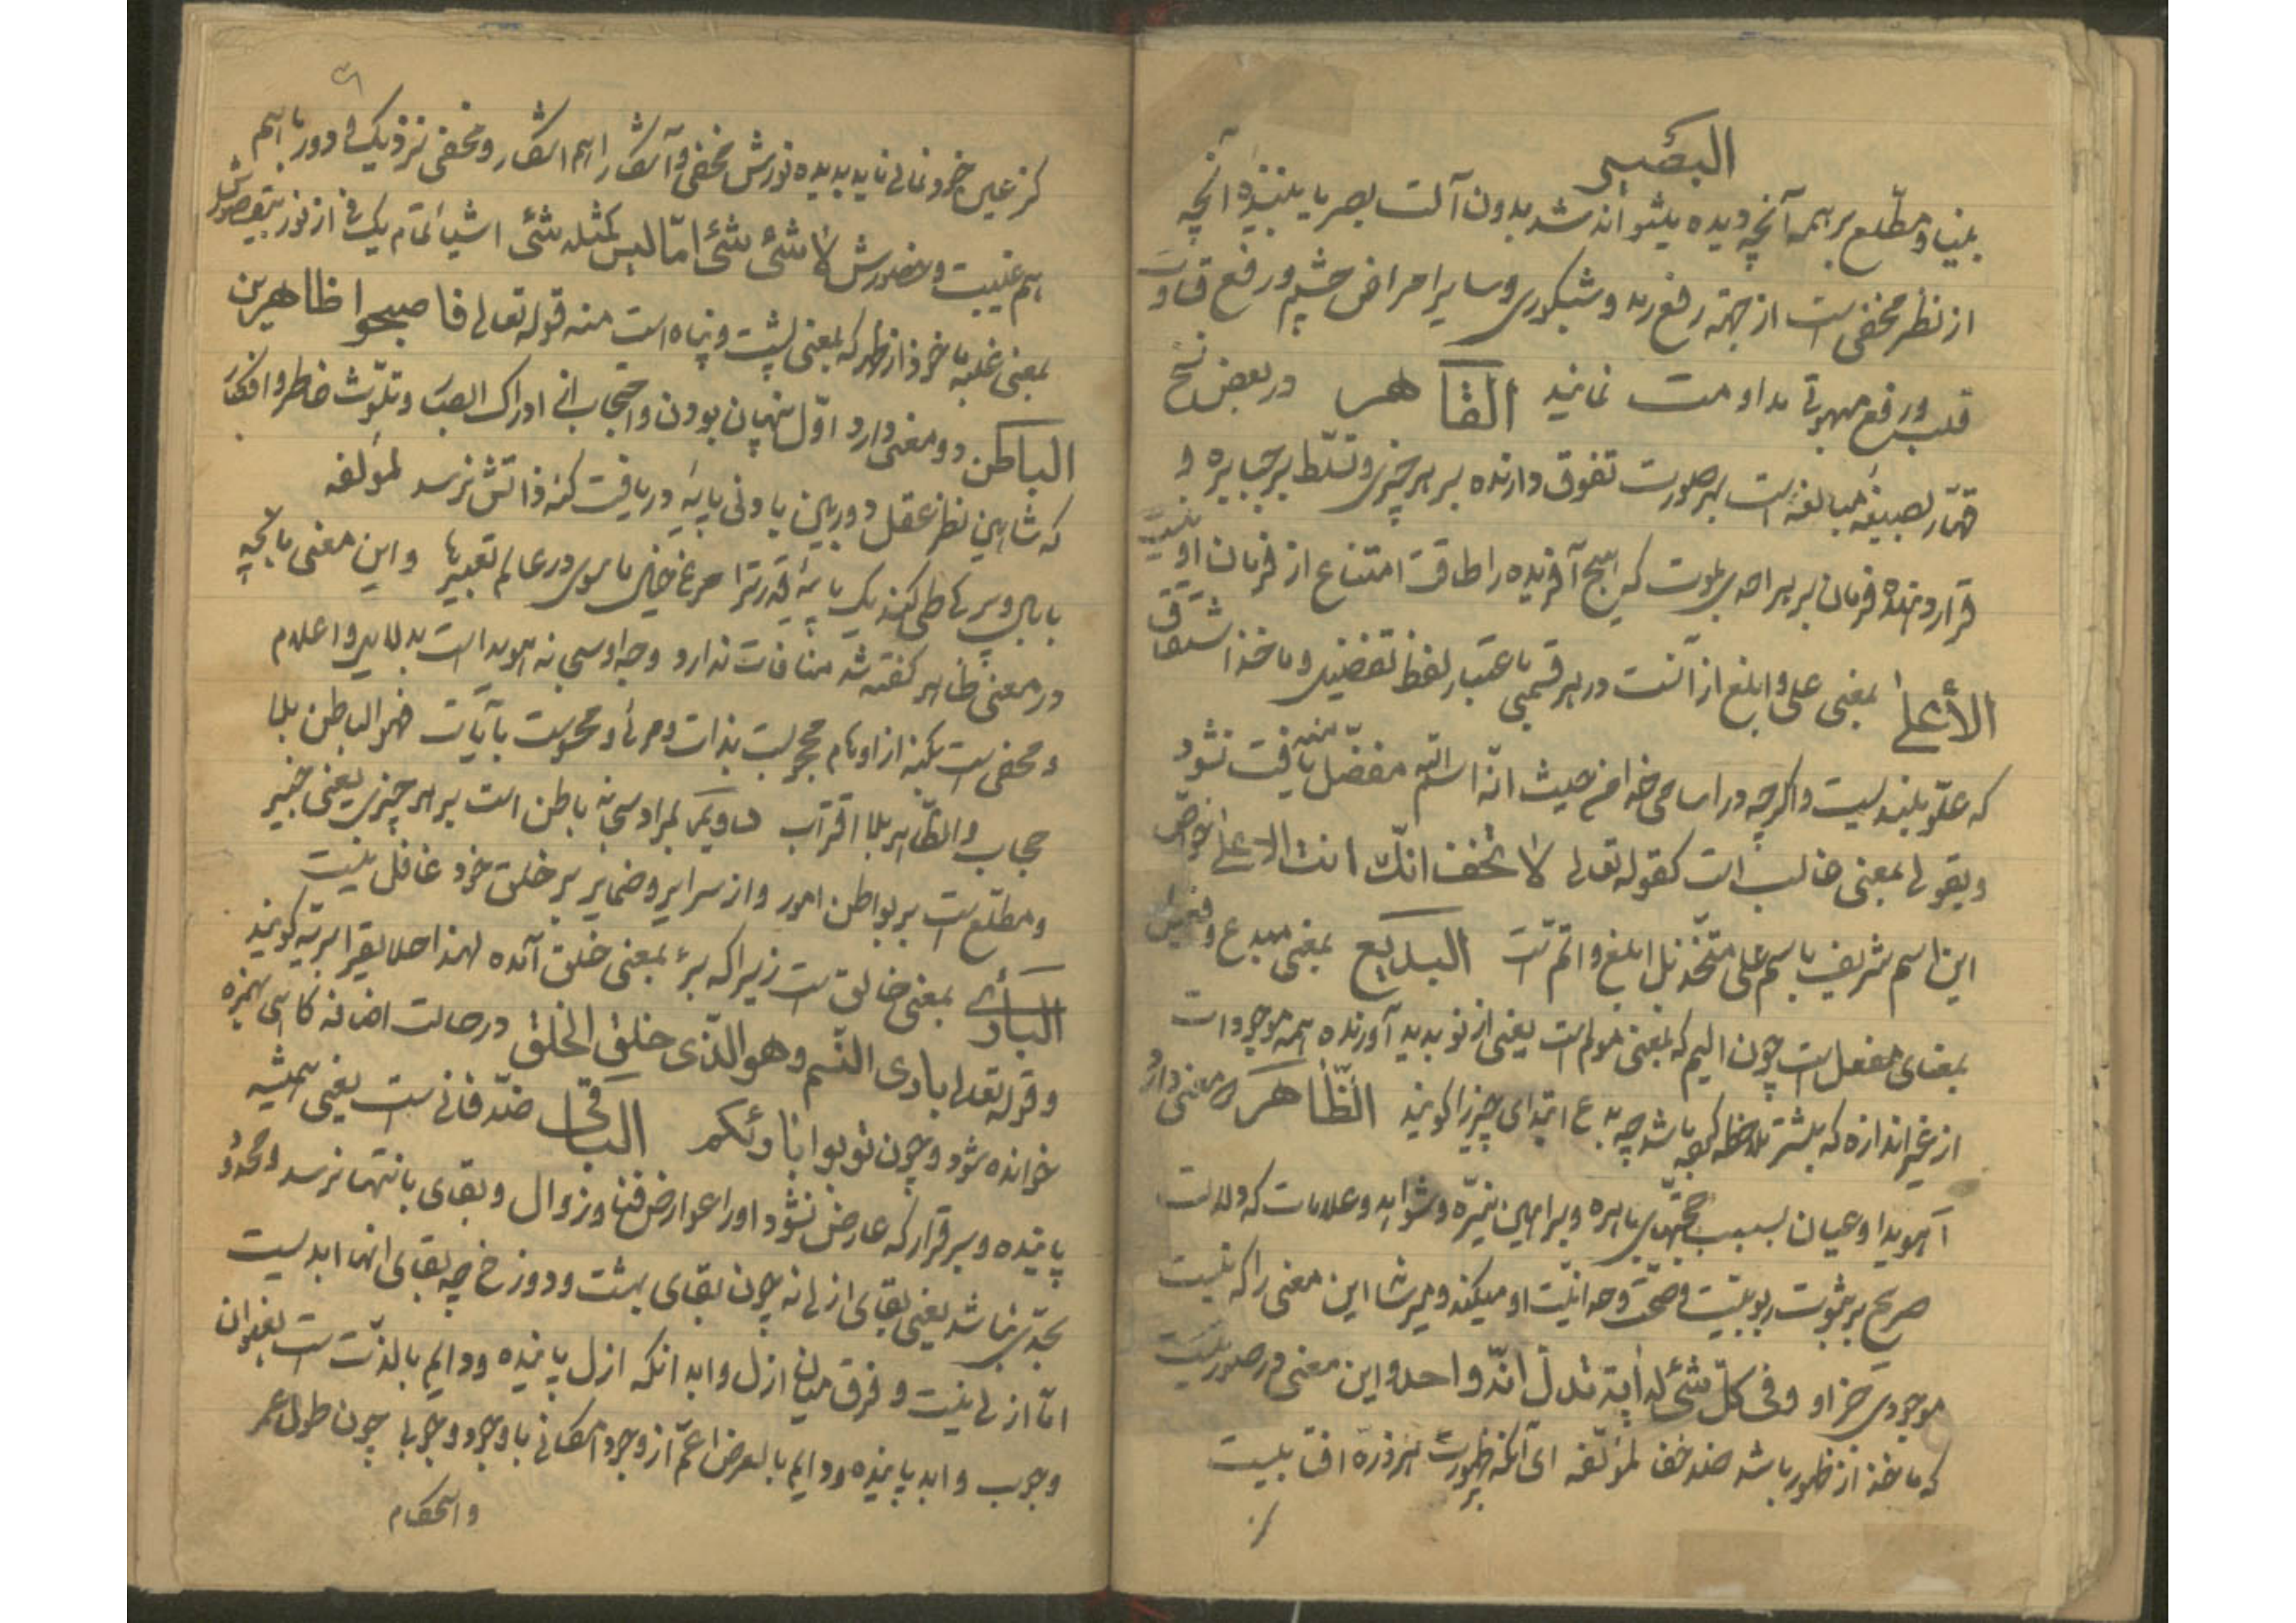 البصیر
بینا و مطلع بر همه آنچه دیده بشود بدون آلت بصر یا بیننده آنچه
از نظر مخفی است از جهة رفع رمد و شبکوری و سایر امراض چشم و رفع قساوت
قلب و رفع مداومت نمایند القاهر در بعض نسخ
قهّار بصیغه مبالغه است بهر صورت تفوق دارنده بر هر چیزی و تسلّط بر جبابره و
قرار دهنده فرمان بر هر احدی بموت که هیچ آفریده را طاقت امتناع از فرمان او نیست
الأعلی بمعنی علی و ابلغ از آنست در هر قسمی باعتبار لفظ تفضیل و ماخذ اشتقاق
که علوّ بلندیست و اگرچه در اسامی خدا من حیث انّه اسم الله مفضّل منه یافت نشود
و بقولی بمعنی غالب است کقوله تعالی لا تخف انّک انت الاعلی خواصّ
این اسم شریف با اسم علی متّحد بل ابلغ و اتم است البدیع بمعنی مبدع و فعیل
بمعنای مفعل است چون الیم که بمعنی مولم است یعنی از نو پدید آورنده همه موجودات
از غیر اندازه که پیشتر ملاحظه کرده باشد چه بدع ابتدای چیز را گویند الظّاهر معنی دارد
آ هویدا و عیان بسبب حجّتهای باهره و براهین نیّره و شواهد و علامات که دلالت
صریح بر ثبوت ربوبیّت و صحّت وحدانیّت او میکند و میرساند این معنی را که نیست
موجودی جز او و فی کلّ شئ له آیة تدل انّه واحد و این معنی در صورتیست
که ماخذ از ظهور باشد ضد خفا لمؤلّفه ای آنکه ظهورت بهر ذره آفاقیست
کز عین خرد نمائی ناید بدیده نورش مخفی و آشکارا هم آشکار و مخفی نزدیک و دور باهم
هم غیبت و حضورش لا شئ شئ امّا لیس کمثله شئ اشیا تمام یک فی از نور
بمعنی غلبه ماخوذ از ظهر که بمعنی پشت و پناه است منه قوله تعالی فاصبحوا ظاهرین
الباطن دو معنی دارد اوّل پنهان بودن و احتجاب از ادراک ابصار و تلوّث خاطر و افکار
که شاهین نظر عقل دوربین بادنی پایهٔ دریافت کنه ذاتش نرسد لمؤلفه
با بال و پر ما طی کند یک پایهٔ قدر ترا مرغ خیال ما در عالم تعبیرها و این معنی با آنچه
در معنی ظاهر گفته شد منافات ندارد و چه او سبحانه هویداست بدلایل و اعلام
و مخفی است بکنه از اوهام محجوبست بذات و مرئی و محسوست بآیات فهو الباطن بلا
حجاب و الظّاهر بلا اقتراب دویم مراد سبحانه باطن است بر هر چیزی یعنی خبیر
و مطلع است بر بواطن امور و از سرایر و ضمایر بر خلق خود غافل نیست
البارئ بمعنی خالق است زیرا که برء بمعنی خلق آمده لهذا اخلایق را بریّه گویند
و قوله تعالی بادی النّسم و هو الّذی خلق الخلق در حالت اضافه کاهی بهمزه
خوانده شود و چون توبوا الی بارئکم الباقی ضدّ فانیست یعنی همیشه
پاینده و برقرار که عارض نشود او را عوارض فنا و زوال و بقای بانتها نرسد و محدود
بحدّی نباشد یعنی بقای ازلی نه چون بقای بهشت و دوزخ چه بقای انها ابدیست
امّا ازلی نیست و فرق میان ازل و ابد انکه ازل پاینده و دایم بالذّات است بعنوان
وجوب و ابد پاینده و دایم بالعرض اعمّ از وجود امکانی یا وجود وجوبی چون طول عمر
و استحکام